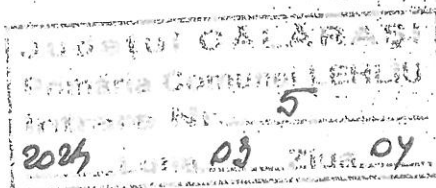 Județul CĂLĂRAȘI
Primăria Comunei LEHLIU
Nr. 5
2024 Luna 03 Ziua 04